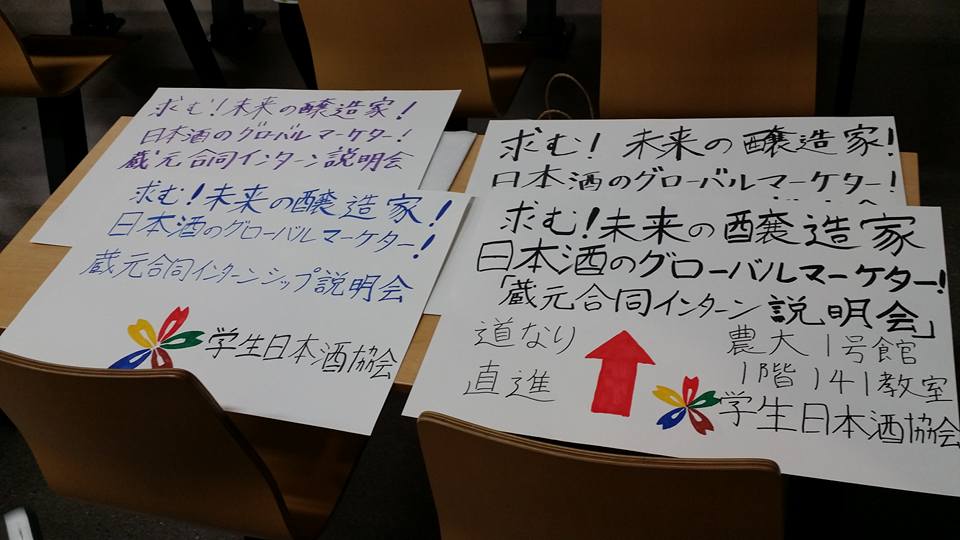 求む!未来の醸造家!
日本酒のグローバルマーケター!
蔵元合同インターン説明会
求む!未来の醸造家!
日本酒のグローバルマーケター!
蔵元合同インターンシップ説明会
学生日本酒協会
求む!未来の醸造家!
日本酒のグローバルマーケター!
求む!未来の醸造家
日本酒のグローバルマーケター!
「蔵元合同インターン説明会」
道なり
直進
農大1号館
1階141教室
学生日本酒協会